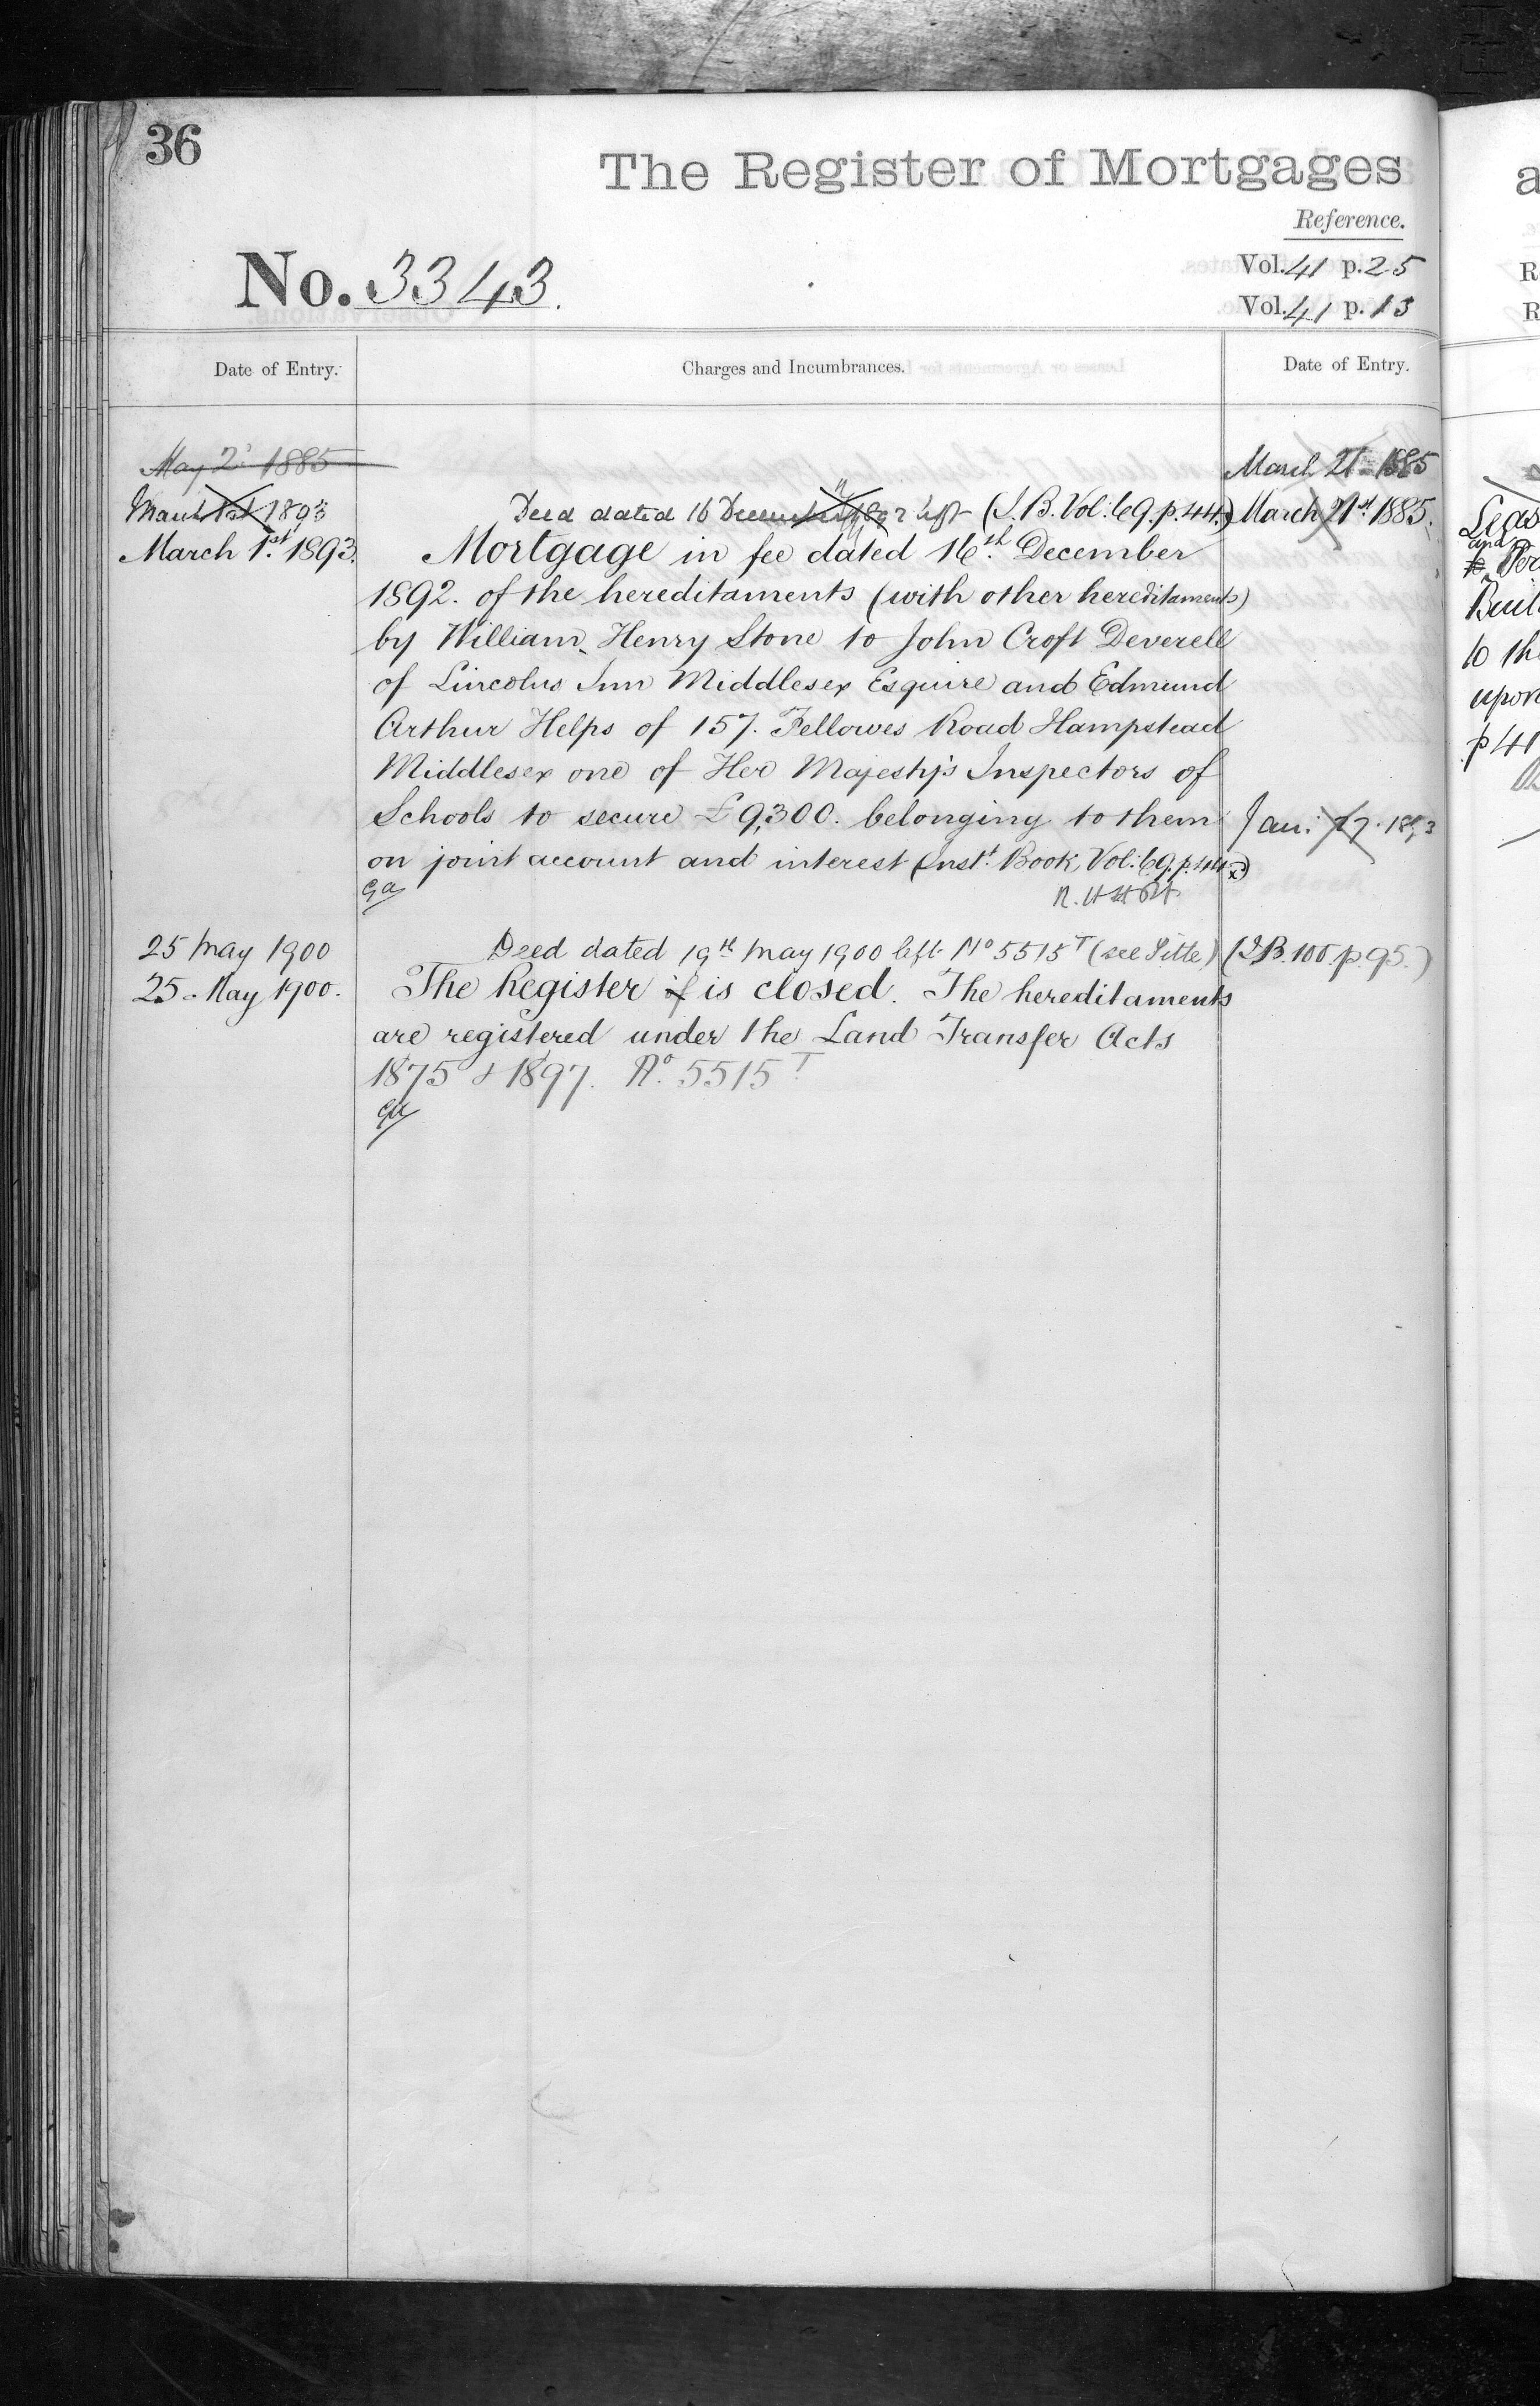 36
The Register of Mortgages
Reference.
No. 3343.
Vol. 41 p. 25
Vol. 41 p. 13
Date of Entry. Charges and Incumbrances. Date of Entry.
May 2 1885 March 21 1885
March 1st 1893 Deed dated 16 December 1892 left (I.B. Vol. 69. p. 44.) March 21st 1885.
March 1st 1893. Mortgage in fee dated 16th December
1892. of the hereditaments (with other hereditaments)
by William Henry Stone to John Croft Deverell
of Lincolns Inn Middlesex Esquire and Edmund
Arthur Helps of 157. Fellowes Road Hampstead
Middlesex one of Her Majesty's Inspectors of
Schools to secure £9,300. belonging to them Jan: 27. 1893
on joint account and interest (Inst. Book, Vol: 69. p. 44.)
25 May 1900 Deed dated 19th May 1900 left No 5515 T (see Title) (I.B. 100. p. 95.)
25 May 1900. The Register of is closed. The hereditaments
are registered under the Land Transfer Acts
1875 & 1897. No. 5515 T